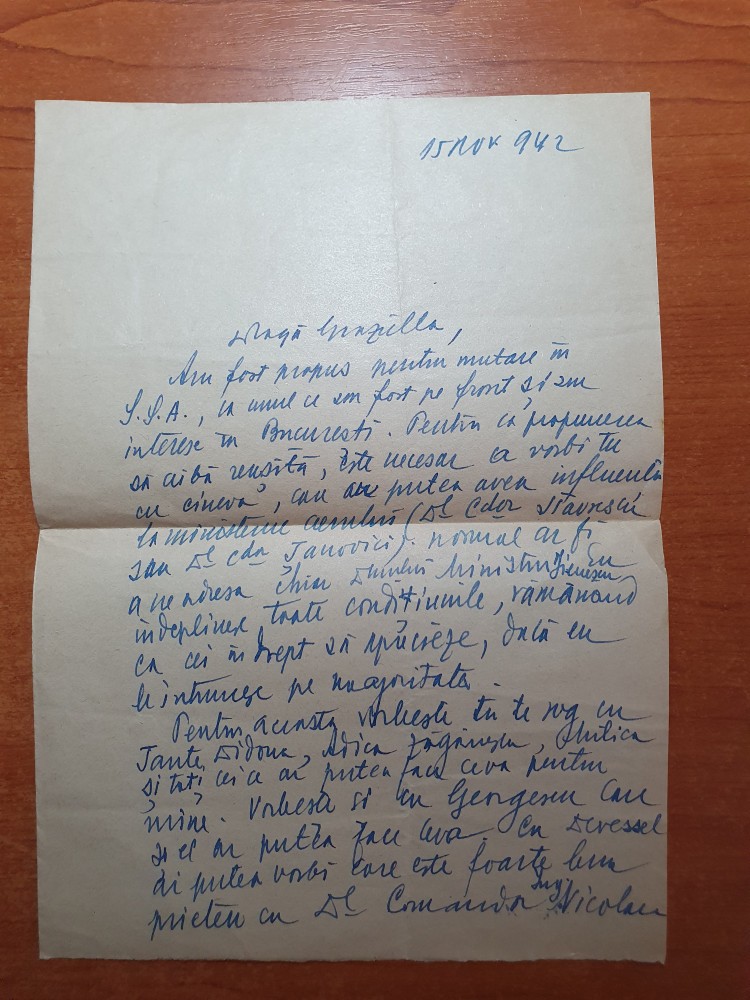 15 Nov 942
Dragă Graziella,
Am fost propus pentru mutare în
S.S.A., ca unul ce am fost pe front și am
interese în București. Pentru ca propunerea
să aibă reușită, este necesar ca vorbi tu
cu cineva, care ar putea avea influență
la ministerul aerului (Dl Cdor Stavrescu
sau Dl cdor Ianovici). normal ar fi
a ne adresa chiar Domnului Ministru Jienescu, Eu
îndeplinesc toate condițiunile, rămânând
ca cei în drept să aprecieze, dacă eu
le întrunesc pe majoritatea.
Pentru aceasta vorbește tu te rog cu
Tante Didona, Adica Zăgănescu,
și toți cei ce ar putea face ceva pentru
mine. Vorbește și cu Georgescu care
și el ar putea face ceva. Cu Devessel
ai putea vorbi care este foarte bun
prieten cu Dl Comandor Ing. Nicolau